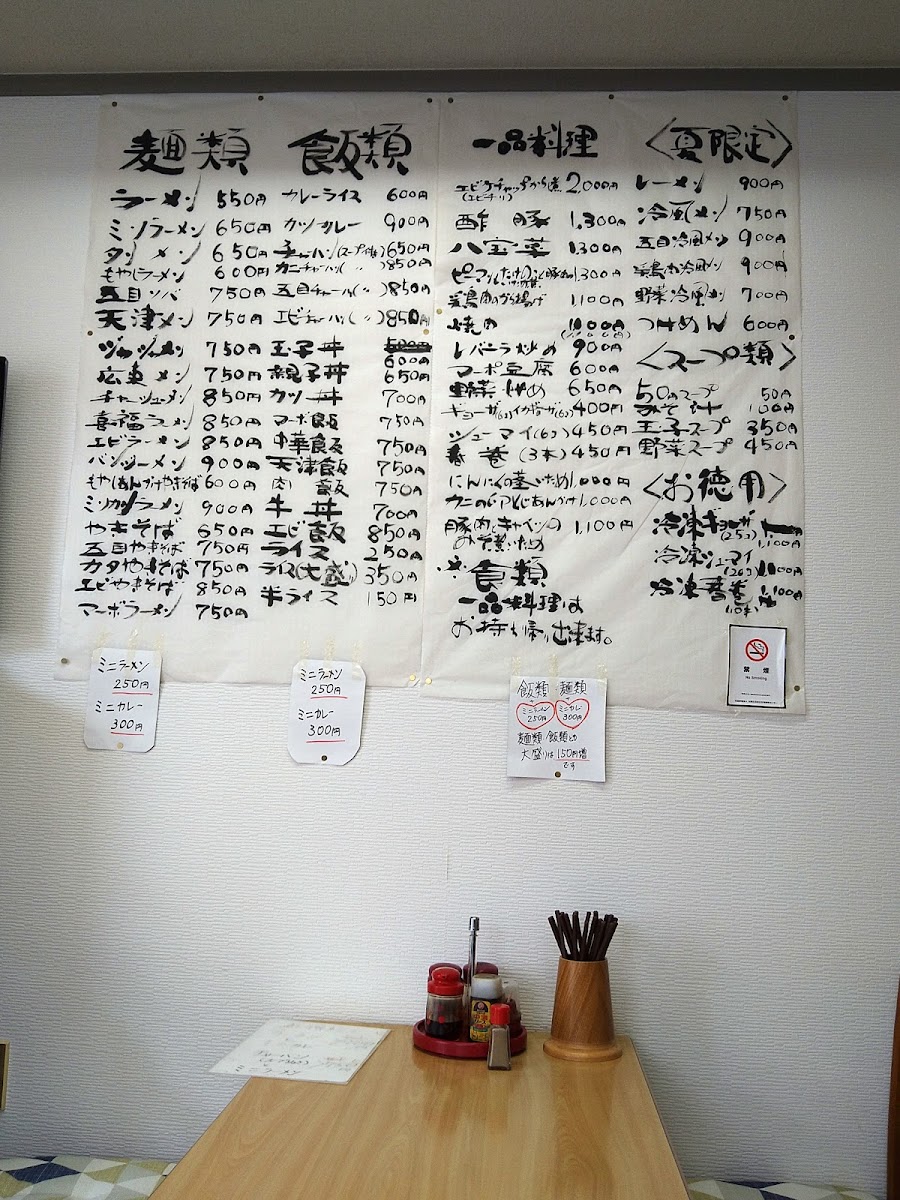 麺類
ラーメン 550円
ミソラーメン 650円
タンメン 650円
もやしラーメン 600円
五目ソバ 750円
天津メン 750円
ジャージャーメン 750円
広東メン 750円
チャーシューメン 850円
喜福ラーメン 850円
エビラーメン 850円
バンメーメン 900円
もやしあんかけやきそば 600円
ミソカツラーメン 900円
やきそば 650円
五目やきそば 750円
カタやきそば 750円
エビやきそば 850円
マーボラーメン 750円
飯類
カレーライス 600円
カツカレー 900円
チャーハン(スープ付) 650円
カニチャーハン(〃) 850円
五目チャーハン(〃) 850円
エビチャーハン(〃) 850円
玉子丼 600円
親子丼 650円
カツ丼 700円
マーボ飯 750円
中華飯 750円
天津飯 750円
肉飯 750円
牛丼 700円
エビ飯 850円
ライス 250円
ライス(大盛) 350円
半ライス 150円
一品料理
2,000円
(エビチリ)
酢豚 1,300円
八宝菜 1,300円
1,300円
から揚げ 1,100円
焼肉
レバニラ炒め 900円
マーボ豆腐 600円
野菜炒め 650円
ギョーザ(6コ) 400円
シューマイ(6コ) 450円
春巻(3本) 450円
にんにくの茎いため 1,000円
1,000円
豚肉とキャベツの 1,100円
みそ炒いため
食類
一品料理は
お持ち帰り出来ます。
〈夏限定〉
レーメン 900円
冷風メン 750円
五目冷風メン 900円
冷風メン 900円
野菜冷風メン 700円
つけめん 600円
〈スープ類〉
スープ 50円
みそ汁 100円
玉子スープ 350円
野菜スープ 450円
〈お徳用〉
冷凍ギョーザ
(25コ) 1,100円
冷凍シューマイ
冷凍春巻 1,100円
(10本)
禁煙
No Smoking
ミニラーメン
250円
ミニカレー
300円
ミニラーメン
250円
ミニカレー
300円
飯類 麺類
ミニラーメン 250円
ミニカレー 300円
麺類 飯類との
大盛りは150円増
です